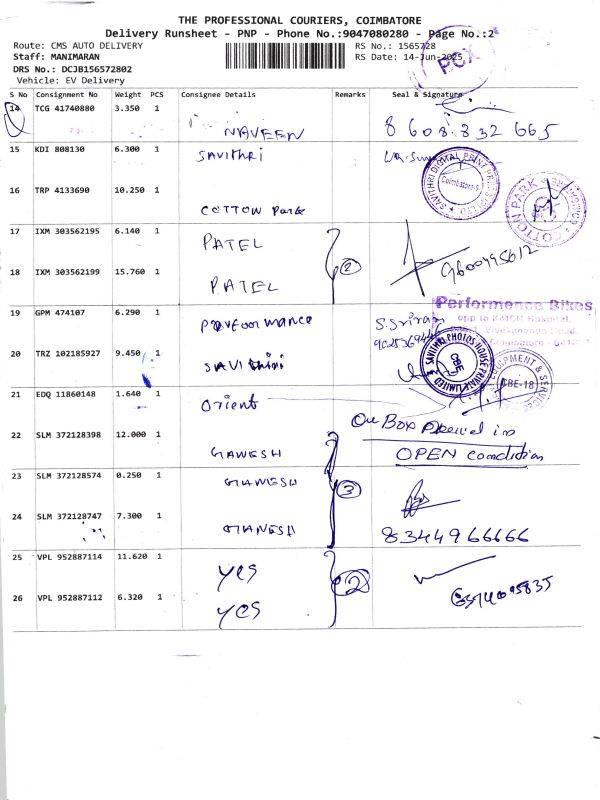 THE PROFESSIONAL COURIERS, COIMBATORE
Delivery Runsheet - PNP - Phone No.:9047080280 - Page No.:2
Route: CMS AUTO DELIVERY
RS No.: 1565728
Staff: MANIMARAN
RS Date: 14-Jun-2025
DRS No.: DCJB156572802
Vehicle: EV Delivery
PCX
S No Consignment No Weight PCS Consignee Details Remarks Seal & Signature
14 TCG 41740880 3.350 1 NAVEEN 8608332665
15 KDI 808130 6.300 1 SAVITHRI
SAVITHRI DIGITAL PRINT Coimbatore
16 TRP 4133690 10.250 1 COTTON Park
COTTON PARK
17 IXM 303562195 6.140 1 PATEL
18 IXM 303562199 15.760 1 PATEL 2 9600495612
19 GPM 474107 6.290 1 S.Sriram
Performence Bikes
opp to KMCH Hospital,
20 TRZ 102185927 9.450 1
SAVITHRI PHOTOS HOUSE PRIVATE LIMITED CBE
EQUIPMENT & SERVICES CBE-18
21 EDQ 11860148 1.640 1 Orient
One Box
22 SLM 372128398 12.000 1 GANESH OPEN condition
23 SLM 372128574 0.250 1 GANESH 3
24 SLM 372128747 7.300 1 GANESH 8344966666
25 VPL 952887114 11.620 1 YES 2
26 VPL 952887112 6.320 1 YES